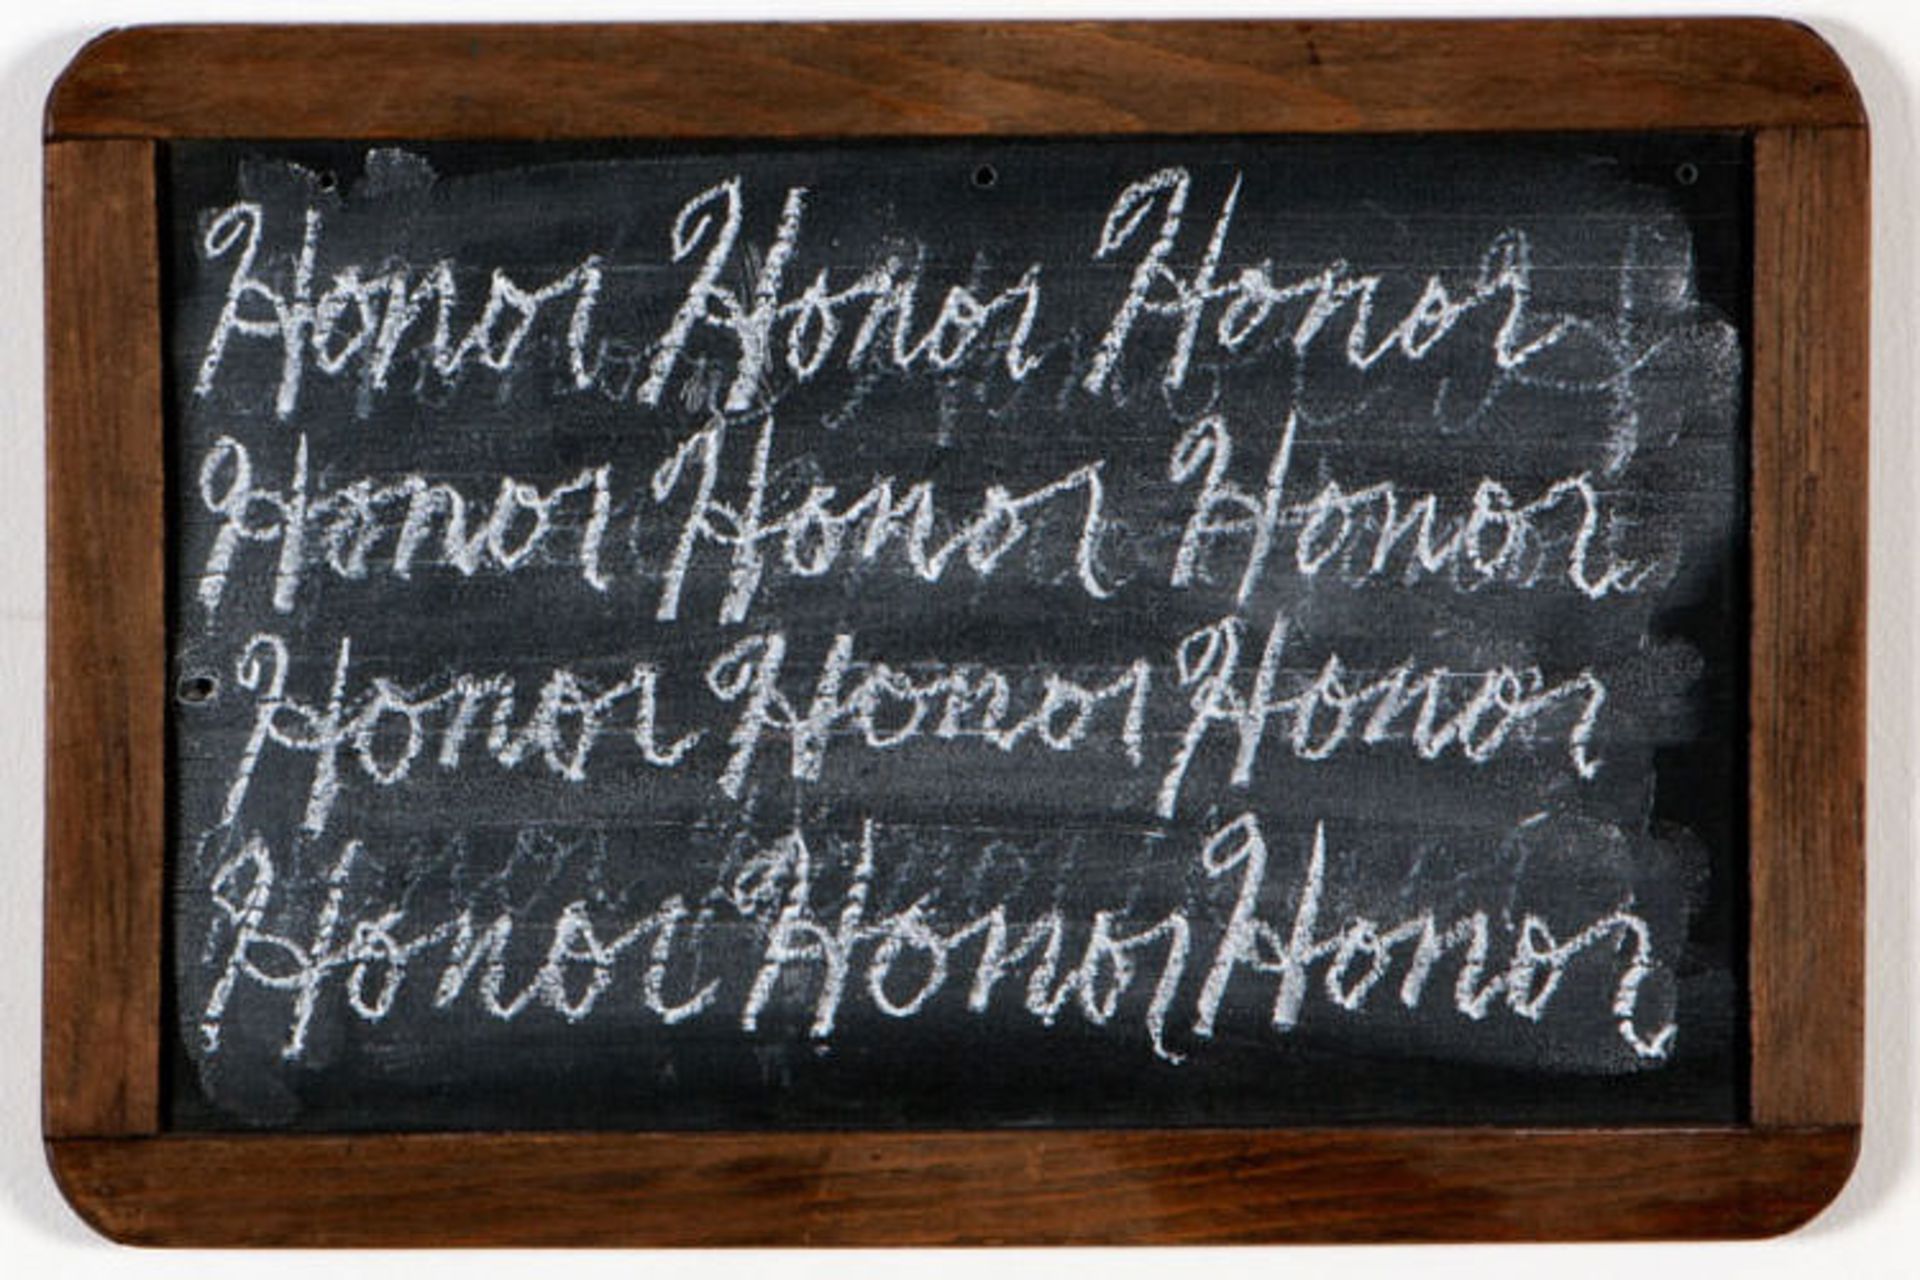 Honor Honor Honor
Honor Honor Honor
Honor Honor Honor
Honor Honor Honor